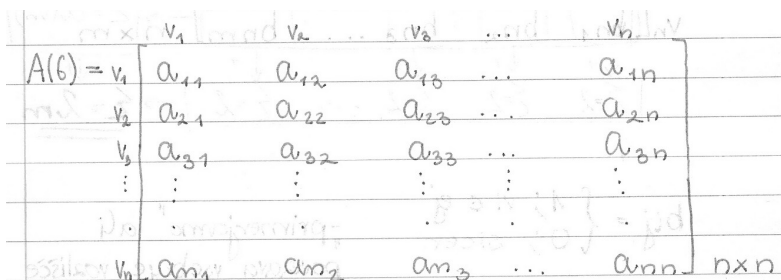 v₁ v₂ v₃ ... vₙ
A(6) = v₁ a₁₁ a₁₂ a₁₃ ... a₁ₙ
v₂ a₂₁ a₂₂ a₂₃ ... a₂ₙ
v₃ a₃₁ a₃₂ a₃₃ ... a₃ₙ
⋮ ⋮ ⋮ ⋮ ⋮ ⋮
vₙ aₙ₁ aₙ₂ aₙ₃ ... aₙₙ n×n